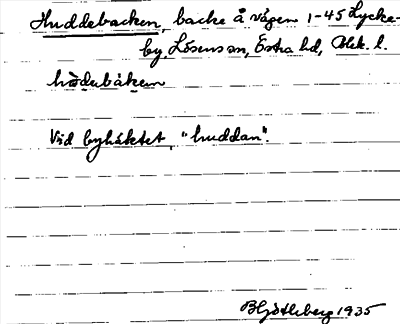 Huddebacken, backe å vägen 1-45 Lycke-
by, Lösens sn, Östra hd, Blek. l.
hudebakem
Vid byhäktet, "huddan".
B Götlheberg 1935